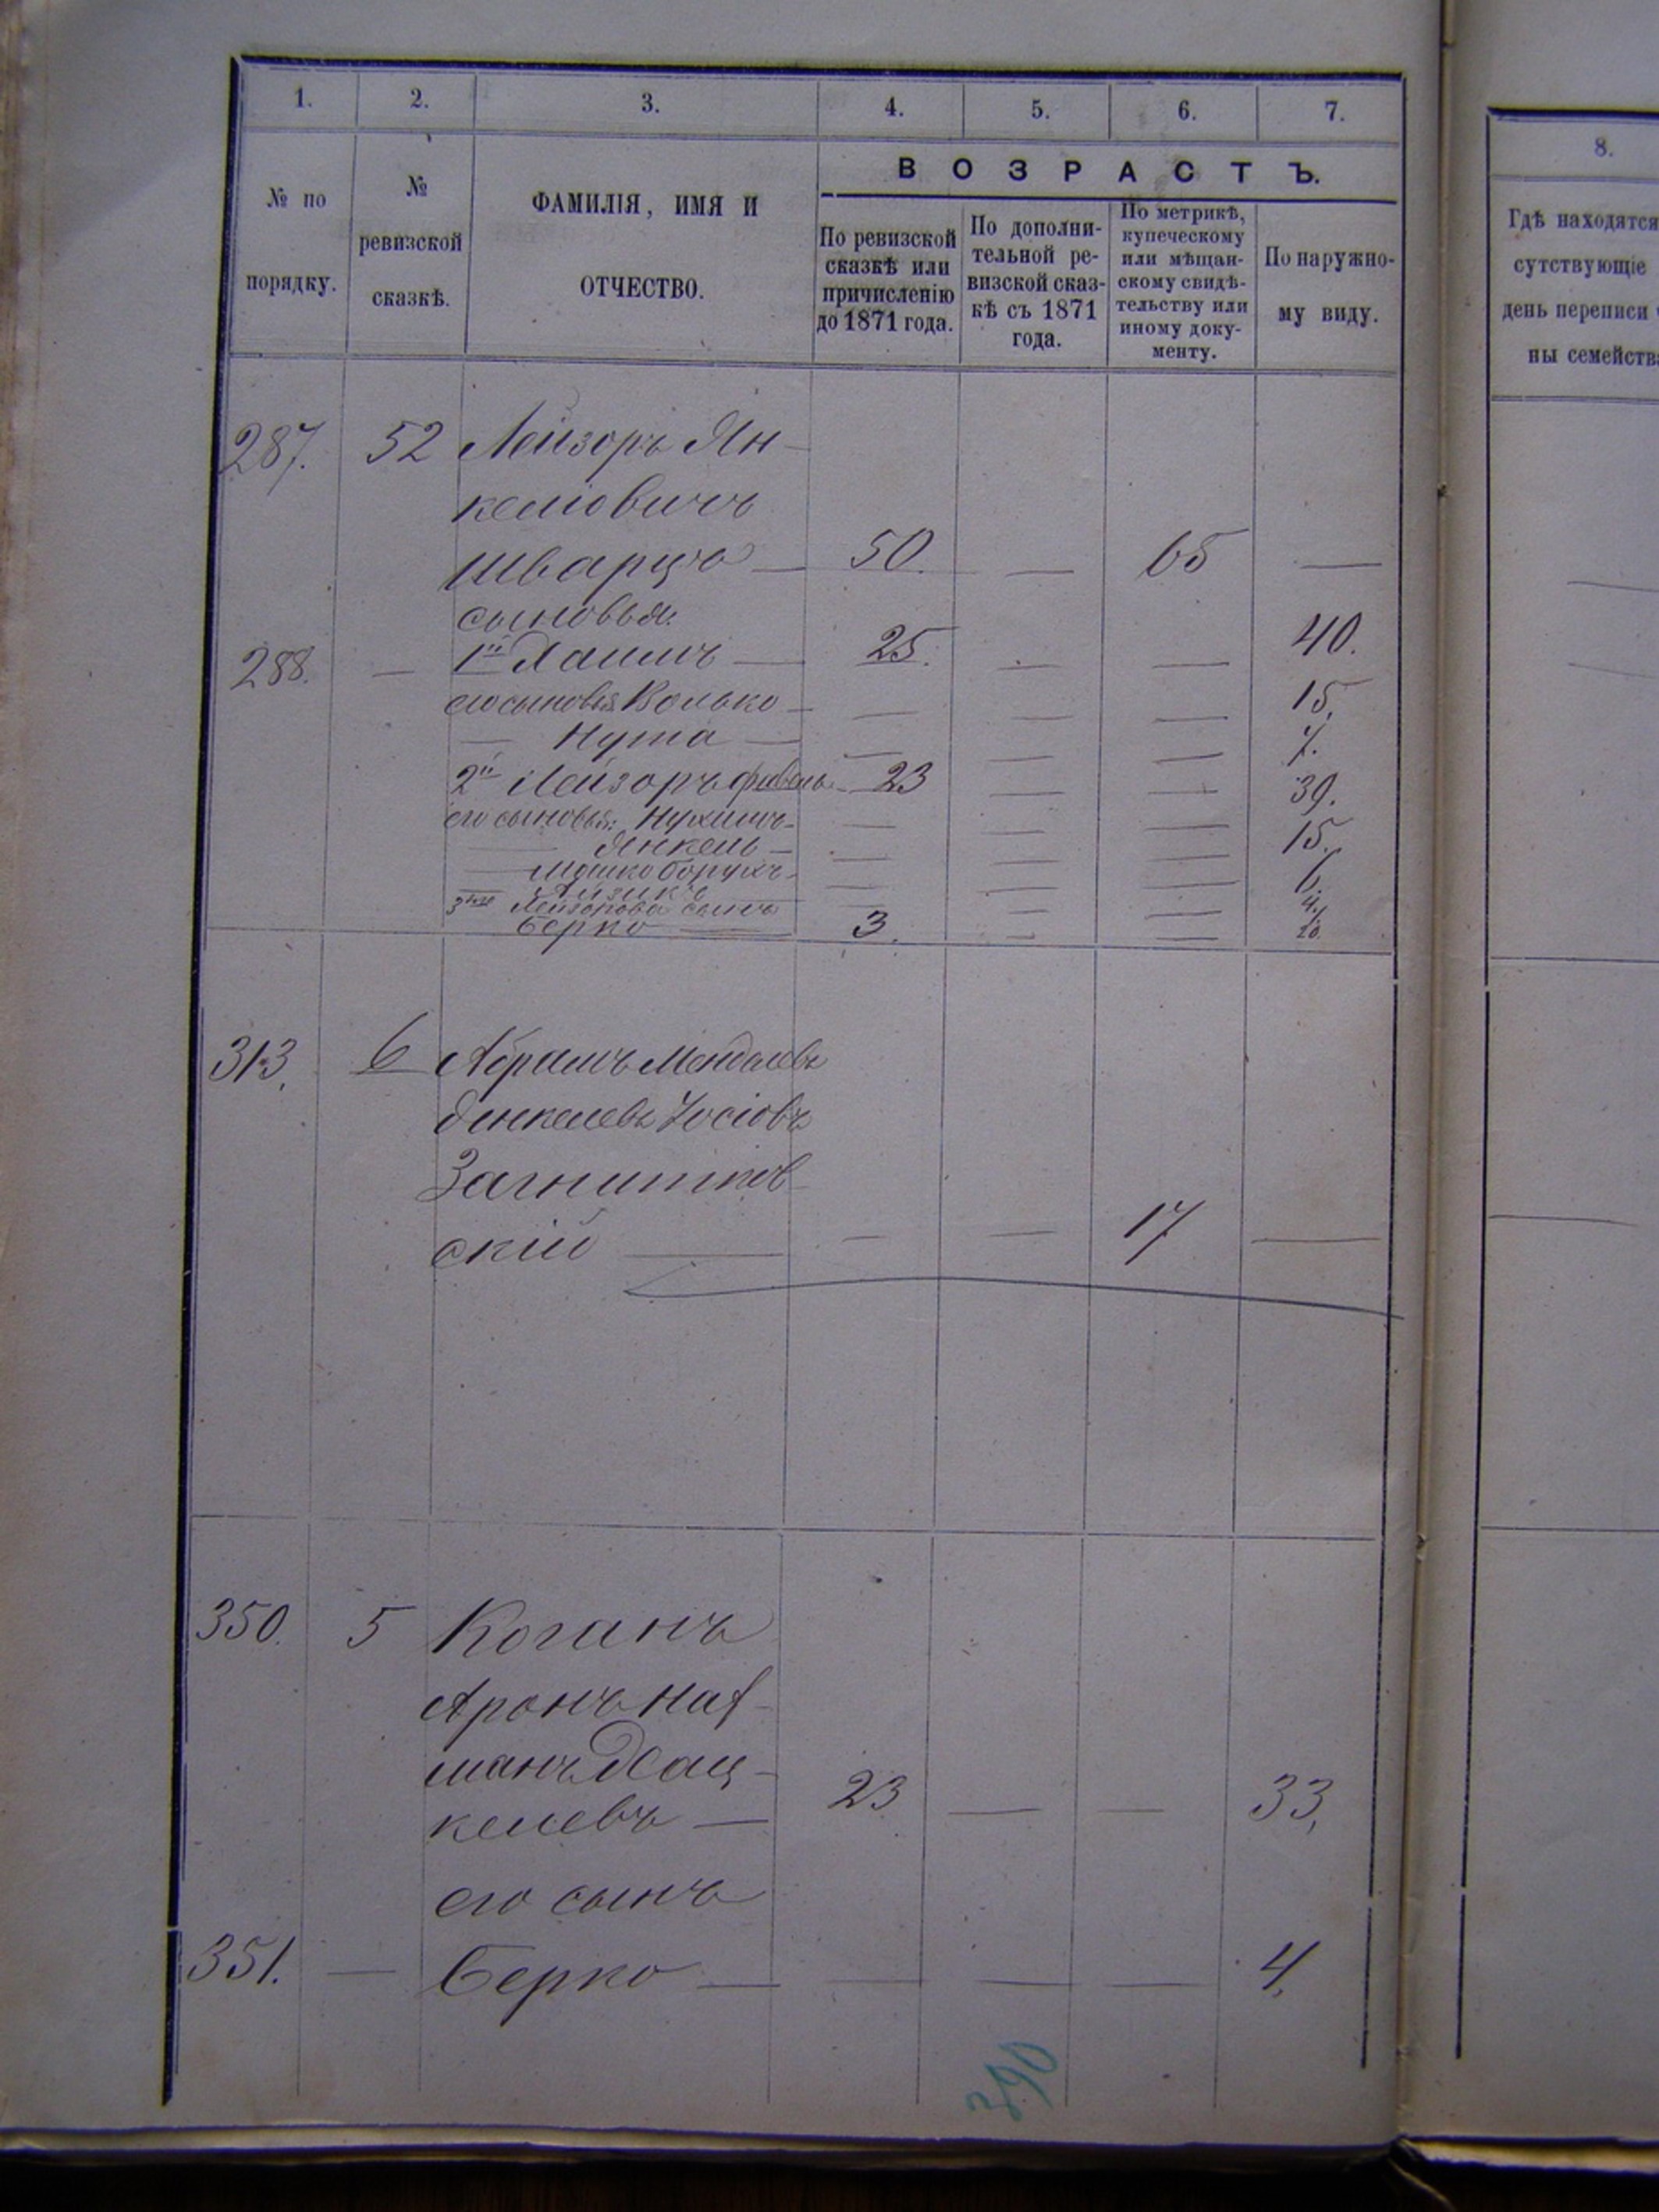 1. 2. 3. 4. 5. 6. 7.
ВОЗРАСТЪ.
№ по порядку.
№ ревизской сказкѣ.
ФАМИЛІЯ, ИМЯ И ОТЧЕСТВО.
По ревизской сказкѣ или причисленію до 1871 года.
По дополни-тельной ре-визской сказ-кѣ съ 1871 года.
По метрикѣ, купеческому или мѣщан-скому свидѣ-тельству или иному доку-менту.
По наружно-му виду.
287. 52 Лейзоръ Ян-
келіовичъ
Шварцъ — 50. — 65 —
сыновья.
288. — 1й Хаимъ — 25. — — 40.
его сыновья Волько — — — — 15.
— Нута — — — — 7.
2й Лейзоръ Фавель — 23 — — 39.
его сыновья: Нухимъ — — — — 15.
— Янкель — — — —
— Мошко Борухъ — — — — 6.
— Айзикъ — — — 4.
Лейзорова сынъ
Берко — 3. — — 20.
313. 6 Абрамъ Менделевъ
Янкелевъ Іосіовъ
Загнитков-
скій — — — 17 —
350. 5 Коганъ
Аронъ Нах-
манъ Хац-
келевъ — 23 — — 33.
его сынъ
351. — Берко — — — — 4.
390
8.
Гдѣ находятся
сутствующіе
день переписи
ны семейств